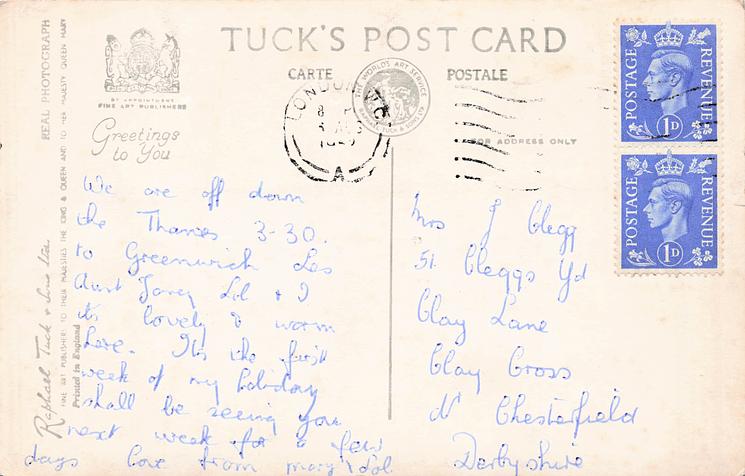 TUCK'S POST CARD
CARTE POSTALE
BY APPOINTMENT
FINE ART PUBLISHERS
Greetings
to You
REAL PHOTOGRAPH
Raphael Tuck & Sons Ltd.
FINE ART PUBLISHERS TO THEIR MAJESTIES THE KING & QUEEN AND TO HER MAJESTY QUEEN MARY
Printed in England
THE WORLD'S ART SERVICE
RAPHAEL TUCK & SONS LTD
LONDON W.C.
8 P
AUG
A
FOR ADDRESS ONLY
POSTAGE REVENUE
1D
POSTAGE REVENUE
1D
We are off down
the Thames 3-30.
to Greenwich Les
Aunt Lol & I
its lovely & warm
here. Its the first
week of my holiday
shall be seeing you
next week for a few
days love from mary Lol
Mrs J Clegg
51 Cleggs Yd
Clay Lane
Clay Cross
Nr Chesterfield
Derbyshire